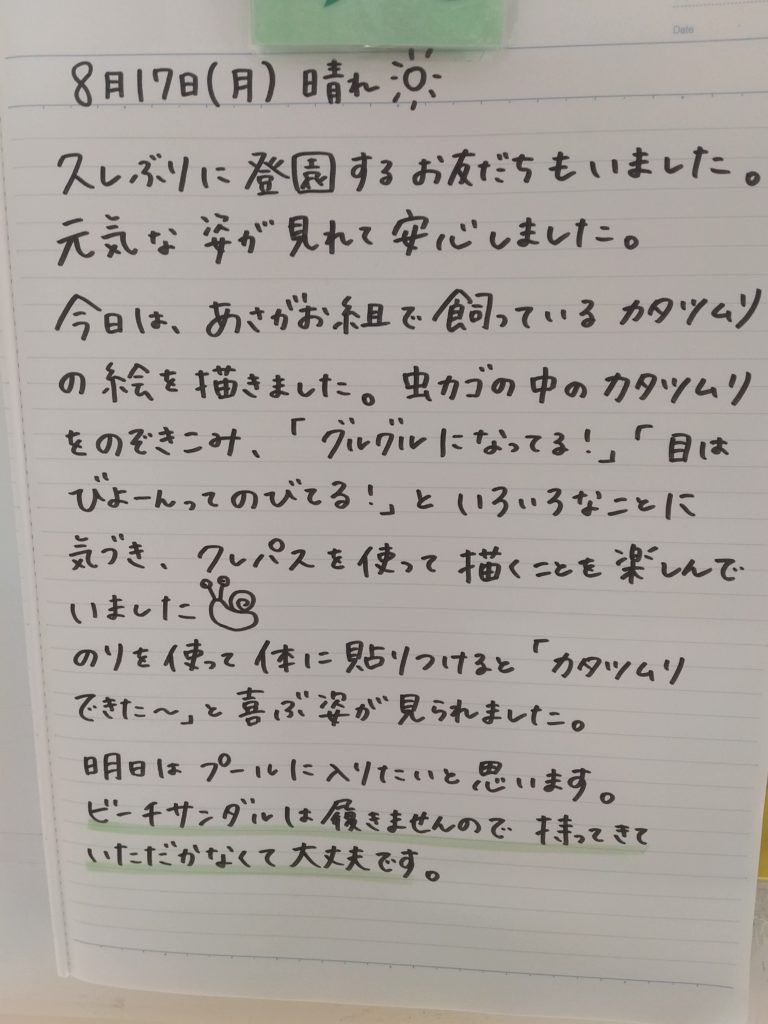 Date
8月17日(月) 晴れ
久しぶりに登園するお友だちもいました。
元気な姿が見れて安心しました。
今日は、あさがお組で飼っているカタツムリ
の絵を描きました。虫カゴの中のカタツムリ
をのぞきこみ、「グルグルになってる!」「目は
びよーんってのびてる!」といろいろなことに
気づき、クレパスを使って描くことを楽しんで
いました
のりを使って体に貼りつけると「カタツムリ
できた〜」と喜ぶ姿が見られました。
明日はプールに入りたいと思います。
ビーチサンダルは履きませんので持ってきて
いただかなくて大丈夫です。